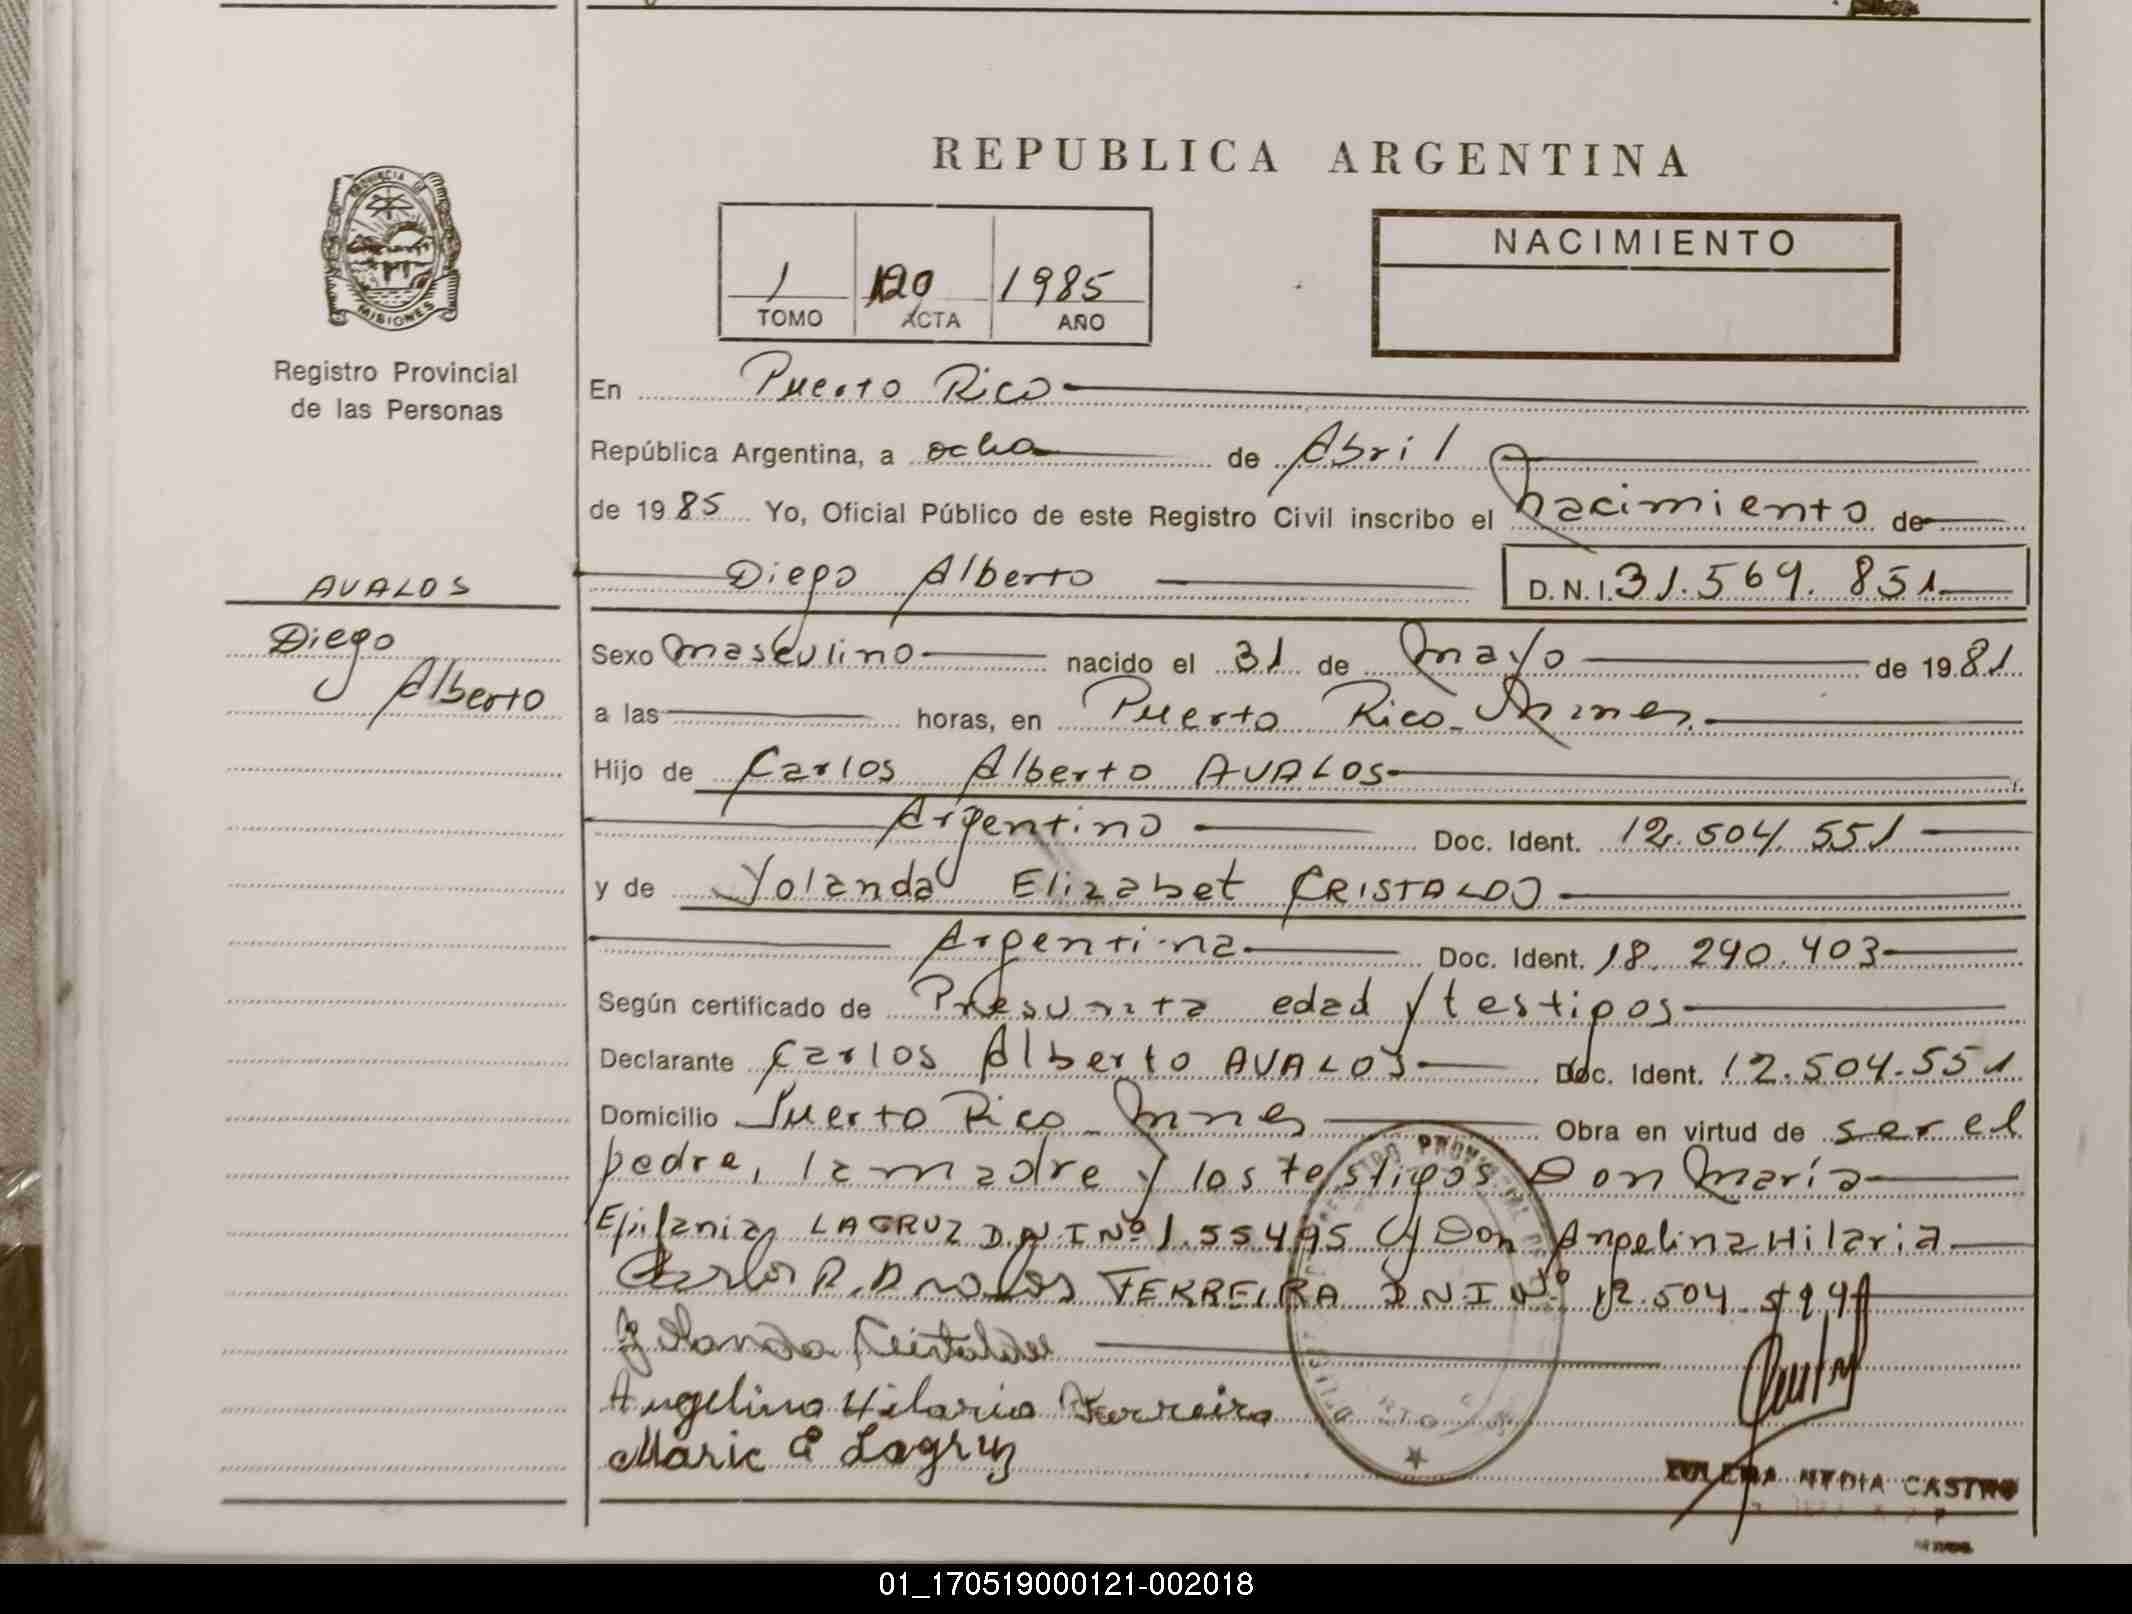 REPUBLICA ARGENTINA
PROVINCIA DE
MISIONES
Registro Provincial
de las Personas
1 120 1985
TOMO ACTA AÑO
NACIMIENTO
En Puerto Rico
República Argentina, a ocho de Abril
de 1985 Yo, Oficial Público de este Registro Civil inscribo el nacimiento de
Diego Alberto D.N.I. 31.569.851
AVALOS
Diego
Alberto
Sexo masculino nacido el 31 de mayo de 1981
a las horas, en Puerto Rico - Mnes.
Hijo de Carlos Alberto AVALOS
Argentino Doc. Ident. 12.504.551
y de Yolanda Elizabet CRISTALDO
Argentina Doc. Ident. 18.290.403
Según certificado de Presunta edad y testigos
Declarante Carlos Alberto AVALOS Doc. Ident. 12.504.551
Domicilio Puerto Rico - Mnes Obra en virtud de ser el
padre, la madre y los testigos Don María
Epifania LACRUZ D.N.I Nº 1.55495 y Don Angelina Hilaria
Carlos A. Avalos FERREIRA DNI Nº 12.504
Yolanda Cristaldo
Angelina Hilaria Ferreira
Maria E Lagruz
NYDIA CASTRO
01_170519000121-002018